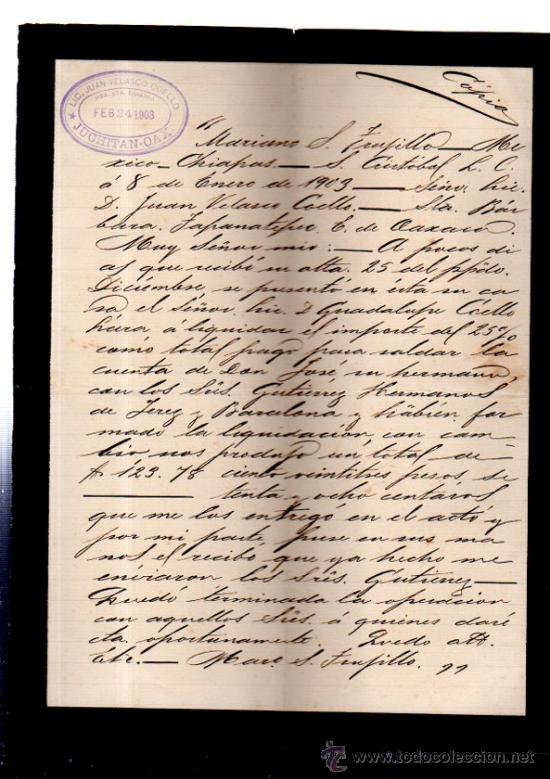 LIC. JUAN VELASCO COELLO
FEB 24 1903
JUCHITAN-OAX.
Cópia
" Mariano S. Trujillo — Me-
xico — Chiapas. — S. Cristóbal L. C.
á 8 de Enero de 1903 — Señor Lic.
D. Juan Velasco Coello. — Sta. Bár-
bara. Tapanatepec. E. de Oaxaca.
Muy Señor mio: — A pocos di
as que recibí su atta. 25 del ppdo.
Diciembre se presentó en ésta su ca
sa el Señor Lic. D. Guadalupe Coello
para a liquidar el importe del 25%
como total pago para saldar la
cuenta de Don José su hermano
con los Srs. Gutiérrez Hermanos
de Jerez y Barcelona y habien for
mado la liquidación con cam-
bio nos produjo un total de
$ 123.78 ciento veintitres pesos, se
tenta y ocho centavos
que me los entregó en el acto y
por mi parte, puse en sus ma
nos el recibo que ya hecho me
enviaron los Srs. Gutierrez —
Quedó terminada la operacion
con aquellos Srs. á quienes daré
cta. oportunamente. Quedo att.
Etc. — Maro. S. Trujillo. "
www.todocoleccion.net